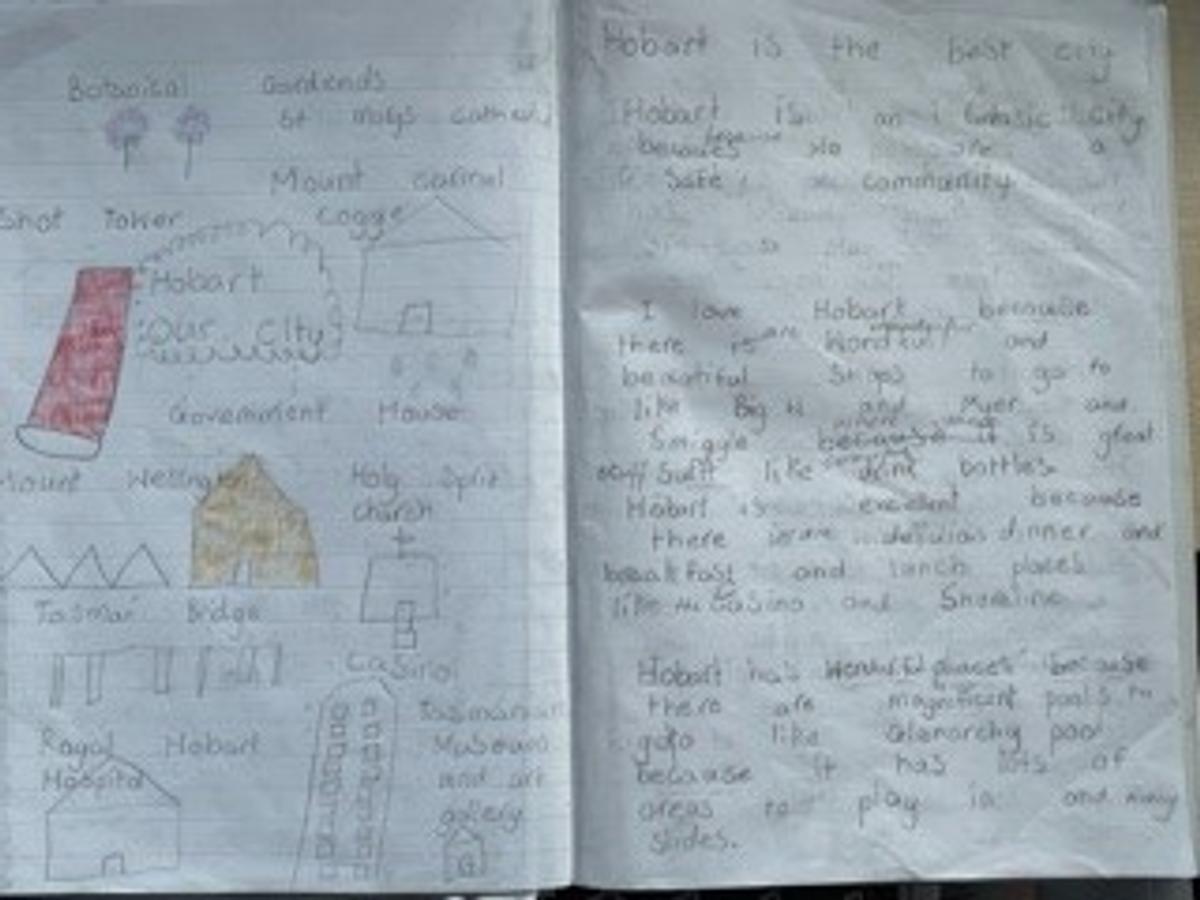 Botanical Gardends
St
Mount carmel
Shot Tower
Hobart
Our City
Government House
Mount Wellington
Holy Sprit
church
Tasman Bridge
Casino
Tasmanian
Museum
and art
gallery
Royal Hobart
Hospital
Hobart is the best city
Hobart is an City
a
Safe community
I love Hobart because
there is are and
beautiful to go to
like Big W and Myer and
Smiggle because it is great
like drink bottles
Hobart is excellent because
there are delicious dinner and
breakfast and lunch places
like the Casino and Shoreline
Hobart has places because
there are magnificent pools to
goto like Glenorchy pool
because it has lots of
areas to play in and many
slides.